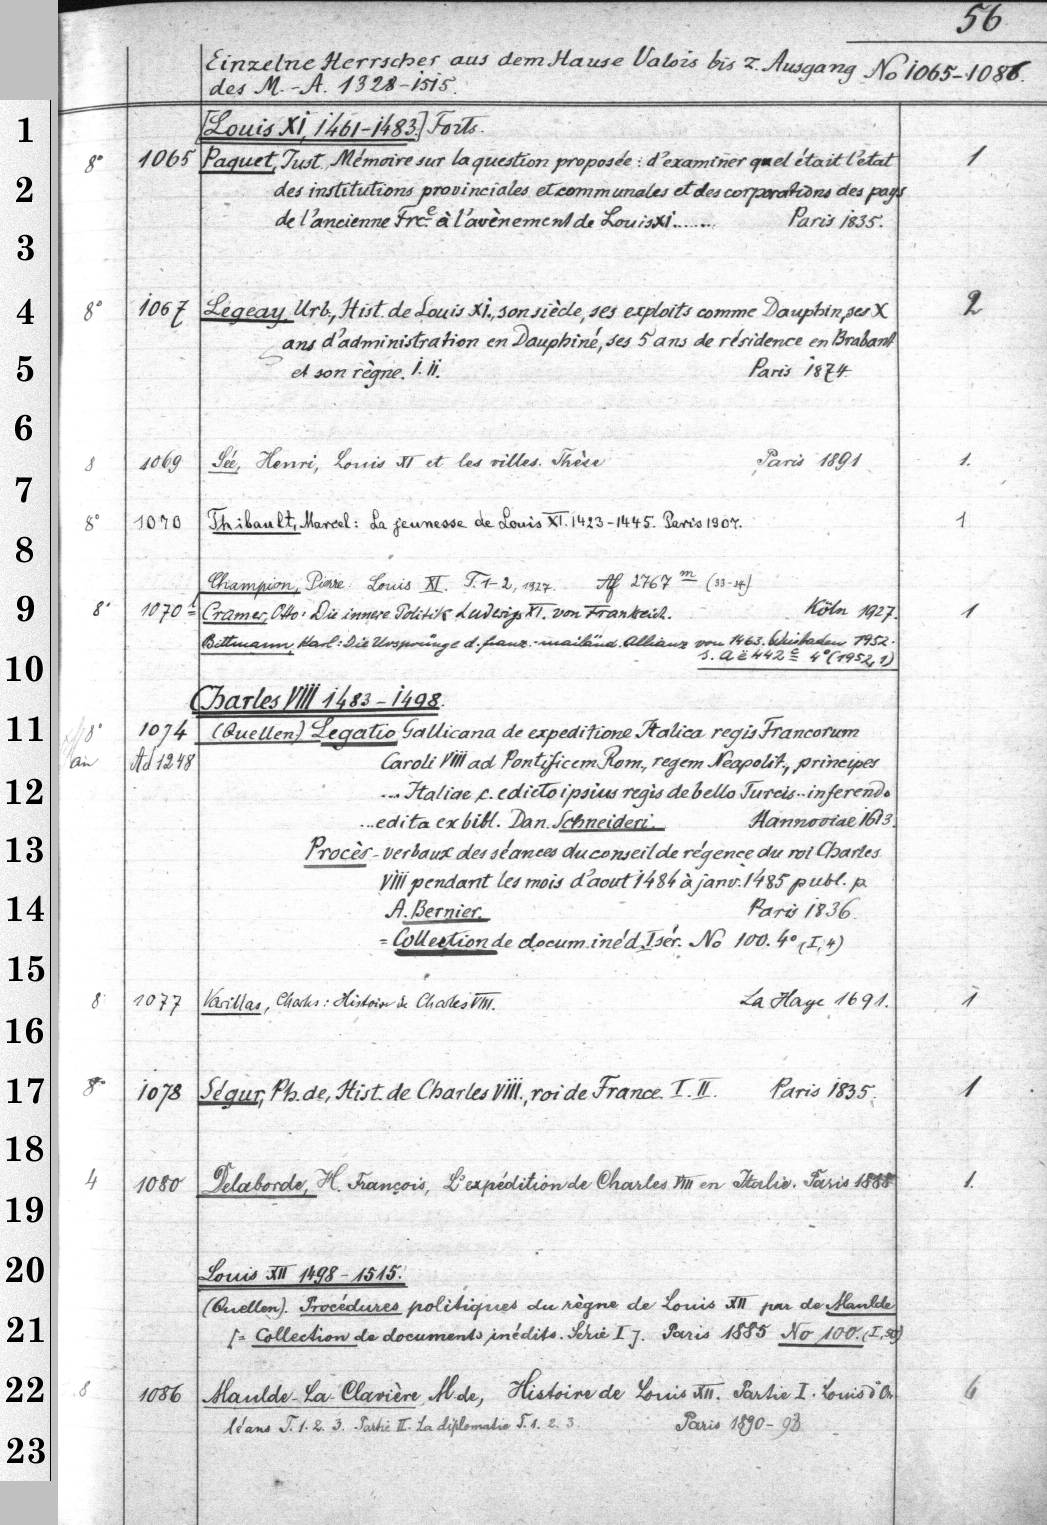 56
Einzelne Herrscher aus dem Hause Valois bis z. Ausgang No 1065-1086.
des M.-A. 1328-1515.
1
[Louis XI, 1461-1483.] Forts.
8° 1065 Paquet, Just. Mémoire sur la question proposée: d'examiner quel était l'état 1
2
des institutions provinciales et communales et des corporations des pays
de l'ancienne Frce à l'avènement de Louis XI....... Paris 1835.
3
4
8° 1067 Legeay Urb., Hist. de Louis XI., son siècle, ses exploits comme Dauphin, ses X 2
ans d'administration en Dauphiné, ses 5 ans de résidence en Brabant
5
et son règne. I. II. Paris 1874
6
8 1069 Sée, Henri, Louis XI et les villes. Thèse Paris 1891 1.
7
8° 1070 Thibault, Marcel: La jeunesse de Louis XI. 1423-1445. Paris 1907. 1
8
Champion, Pierre: Louis XI. T. 1-2, 1927. Af 2767 m (33-34)
9
8° 1070 Cramer, Otto: Die innere Politik Ludwigs XI. von Frankreich. Köln 1927. 1
Bittmann, Karl: Die Ursprünge d. franz.-mailänd. Allianz von 1463. Wiesbaden 1952.
10
s. Aë 442 c 4° (1952, 1)
Charles VIII 1483-1498.
11
8° 1074 (Quellen) Legatio Gallicana de expeditione Italica regis Francorum
an Ad 1248 Caroli VIII ad Pontificem Rom., regem Neapolit., principes
12
... Italiae c. edicto ipsius regis de bello Turcis .. inferendo
... edita ex bibl. Dan. Schneideri. Hannoviae 1613.
13
Procès-verbaux des séances du conseil de régence du roi Charles
VIII pendant les mois d'aout 1484 à janv. 1485 publ. p.
14
A. Bernier. Paris 1836.
= Collection de docum. inéd. I sér. No 100. 4° (I, 4)
15
8 1077 Varillas, Charles: Histoire de Charles VIII. La Haye 1691. 1
16
17
8° 1078 Ségur, Ph. de, Hist. de Charles VIII., roi de France. I. II. Paris 1835. 1
18
4 1080 Delaborde, H. François, L'expédition de Charles VIII en Italie. Paris 1888 1.
19
20
Louis XII 1498-1515.
(Quellen). Procédures politiques du règne de Louis XII par de Maulde
21
[= Collection de documents inédits. Série I]. Paris 1885 No 100. (I, 50)
22
8 1086 Maulde-La-Clavière, M. de, Histoire de Louis XII. Partie I. Louis d'Or- 6
léans T. 1. 2. 3. Partie II. La diplomatie T. 1. 2. 3. Paris 1890-93
23